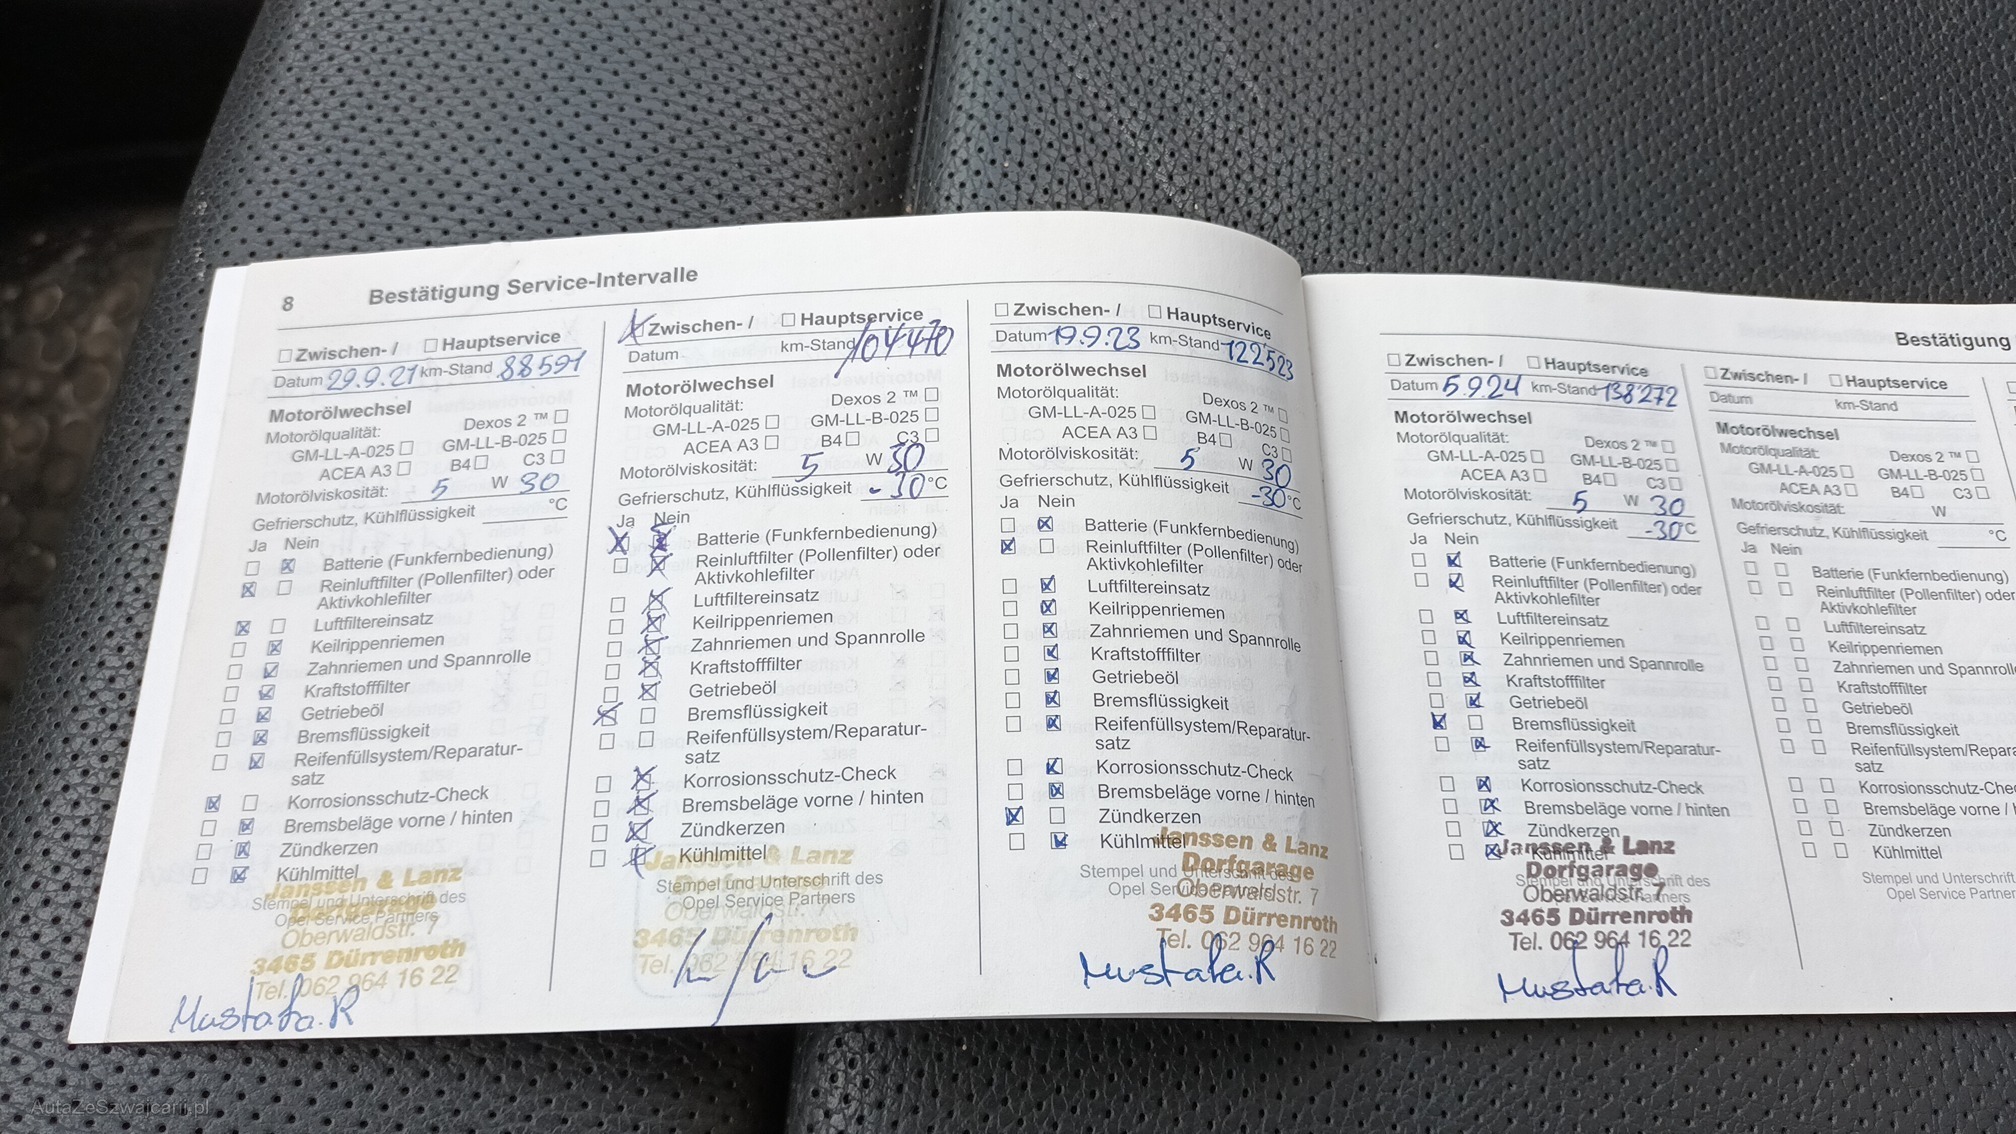 8 Bestätigung Service-Intervalle
Zwischen- / Hauptservice
Datum 29.9.21 km-Stand 88591
Motorölwechsel
Motorölqualität: Dexos 2 ™
GM-LL-A-025 GM-LL-B-025
ACEA A3 B4 C3
Motorölviskosität: 5 W 30
Gefrierschutz, Kühlflüssigkeit °C
Ja Nein
Batterie (Funkfernbedienung)
Reinluftfilter (Pollenfilter) oder
Aktivkohlefilter
Luftfiltereinsatz
Keilrippenriemen
Zahnriemen und Spannrolle
Kraftstofffilter
Getriebeöl
Bremsflüssigkeit
Reifenfüllsystem/Reparatur-
satz
Korrosionsschutz-Check
Bremsbeläge vorne / hinten
Zündkerzen
Kühlmittel
Janssen & Lanz
Stempel und Unterschrift des
Dorfgarage
Opel Service Partners
Oberwaldstr. 7
3465 Dürrenroth
Tel. 062 964 16 22
Mustafa.R
Zwischen- / Hauptservice
Datum km-Stand 104470
Motorölwechsel
Motorölqualität: Dexos 2 ™
GM-LL-A-025 GM-LL-B-025
ACEA A3 B4 C3
Motorölviskosität: 5 W 30
Gefrierschutz, Kühlflüssigkeit -30 °C
Ja Nein
Batterie (Funkfernbedienung)
Reinluftfilter (Pollenfilter) oder
Aktivkohlefilter
Luftfiltereinsatz
Keilrippenriemen
Zahnriemen und Spannrolle
Kraftstofffilter
Getriebeöl
Bremsflüssigkeit
Reifenfüllsystem/Reparatur-
satz
Korrosionsschutz-Check
Bremsbeläge vorne / hinten
Zündkerzen
Kühlmittel
Janssen & Lanz
Stempel und Unterschrift des
Dorfgarage
Opel Service Partners
Oberwaldstr. 7
3465 Dürrenroth
Tel. 062 964 16 22
Zwischen- / Hauptservice
Datum 19.9.23 km-Stand 122523
Motorölwechsel
Motorölqualität: Dexos 2 ™
GM-LL-A-025 GM-LL-B-025
ACEA A3 B4 C3
Motorölviskosität: 5 W 30
Gefrierschutz, Kühlflüssigkeit -30 °C
Ja Nein
Batterie (Funkfernbedienung)
Reinluftfilter (Pollenfilter) oder
Aktivkohlefilter
Luftfiltereinsatz
Keilrippenriemen
Zahnriemen und Spannrolle
Kraftstofffilter
Getriebeöl
Bremsflüssigkeit
Reifenfüllsystem/Reparatur-
satz
Korrosionsschutz-Check
Bremsbeläge vorne / hinten
Zündkerzen
Kühlmittel
Janssen & Lanz
Dorfgarage
Stempel und Unterschrift des
Opel Service Partners
Oberwaldstr. 7
3465 Dürrenroth
Tel. 062 964 16 22
Mustafa.R
Bestätigung
Zwischen- / Hauptservice
Datum 5.9.24 km-Stand 138272
Motorölwechsel
Motorölqualität: Dexos 2 ™
GM-LL-A-025 GM-LL-B-025
ACEA A3 B4 C3
Motorölviskosität: 5 W 30
Gefrierschutz, Kühlflüssigkeit -30 °C
Ja Nein
Batterie (Funkfernbedienung)
Reinluftfilter (Pollenfilter) oder
Aktivkohlefilter
Luftfiltereinsatz
Keilrippenriemen
Zahnriemen und Spannrolle
Kraftstofffilter
Getriebeöl
Bremsflüssigkeit
Reifenfüllsystem/Reparatur-
satz
Korrosionsschutz-Check
Bremsbeläge vorne / hinten
Zündkerzen
Kühlmittel
Janssen & Lanz
Dorfgarage
Stempel und Unterschrift des
Opel Service Partners
Oberwaldstr. 7
3465 Dürrenroth
Tel. 062 964 16 22
Mustafa.R
Zwischen- / Hauptservice
Datum km-Stand
Motorölwechsel
Motorölqualität: Dexos 2 ™
GM-LL-A-025 GM-LL-B-025
ACEA A3 B4 C3
Motorölviskosität: W
Gefrierschutz, Kühlflüssigkeit °C
Ja Nein
Batterie (Funkfernbedienung)
Reinluftfilter (Pollenfilter) oder
Aktivkohlefilter
Luftfiltereinsatz
Keilrippenriemen
Zahnriemen und Spannrolle
Kraftstofffilter
Getriebeöl
Bremsflüssigkeit
Reifenfüllsystem/Repara
satz
Korrosionsschutz-Che
Bremsbeläge vorne /
Zündkerzen
Kühlmittel
Stempel und Unterschrift
Opel Service Partner
AutaZeSzwajcarii.pl